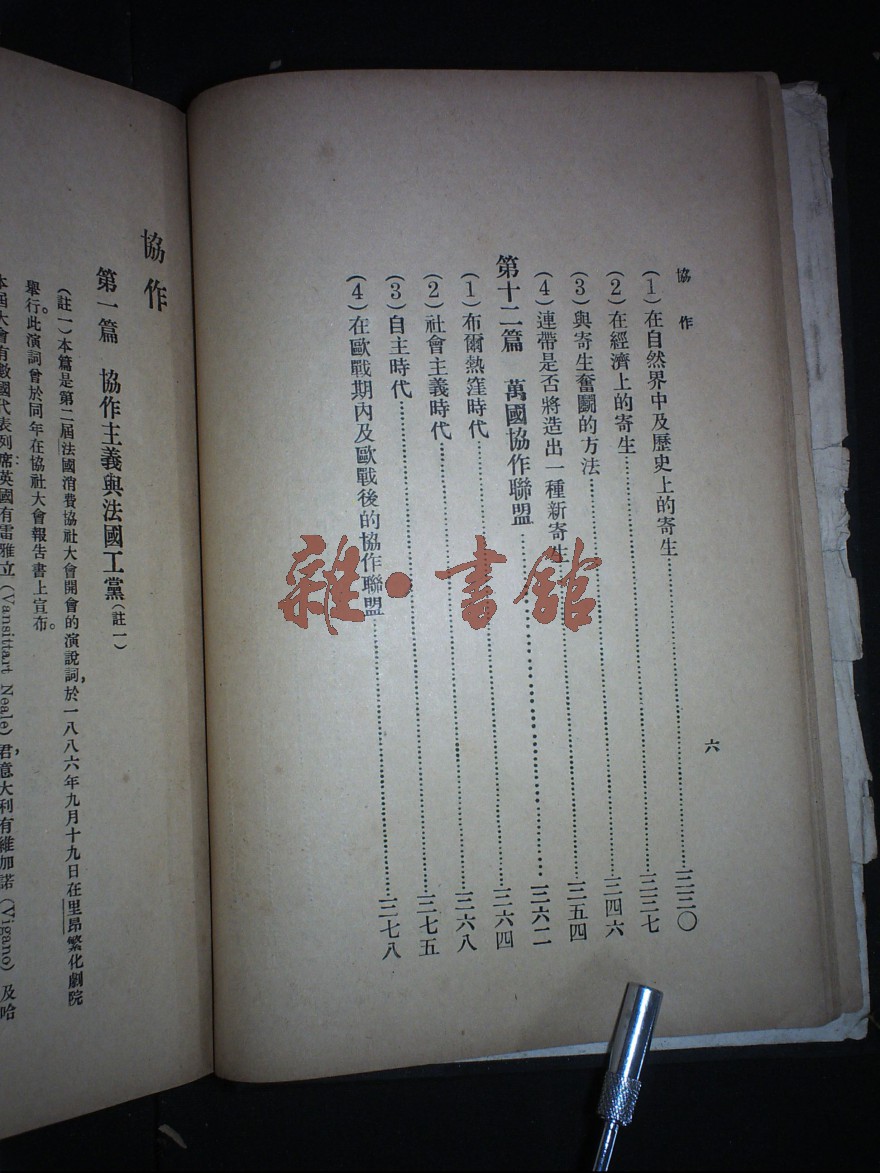 協作
六
(1)在自然界中及歷史上的寄生……三二〇
(2)在經濟上的寄生……三二七
(3)與寄生奮鬬的方法……三四六
(4)連帶是否將造出一種新寄生……三五四
第十二篇 萬國協作聯盟……三六二
(1)布爾熱窪時代……三六四
(2)社會主義時代……三六八
(3)自主時代……三七五
(4)在歐戰期內及歐戰後的協作聯盟……三七八
協作
第一篇 協作主義與法國工黨(註一)
(註一)本篇是第二屆法國消費協社大會開會的演說詞,於一八八六年九月十九日在里昂繁化劇院
舉行。此演詞曾於同年在協社大會報告書上宣布。
本屆大會有數國代表列席:英國有雷雅立(Vansittart Neale)君,意大利有維加諾(Vigano)及哈
雜·書館